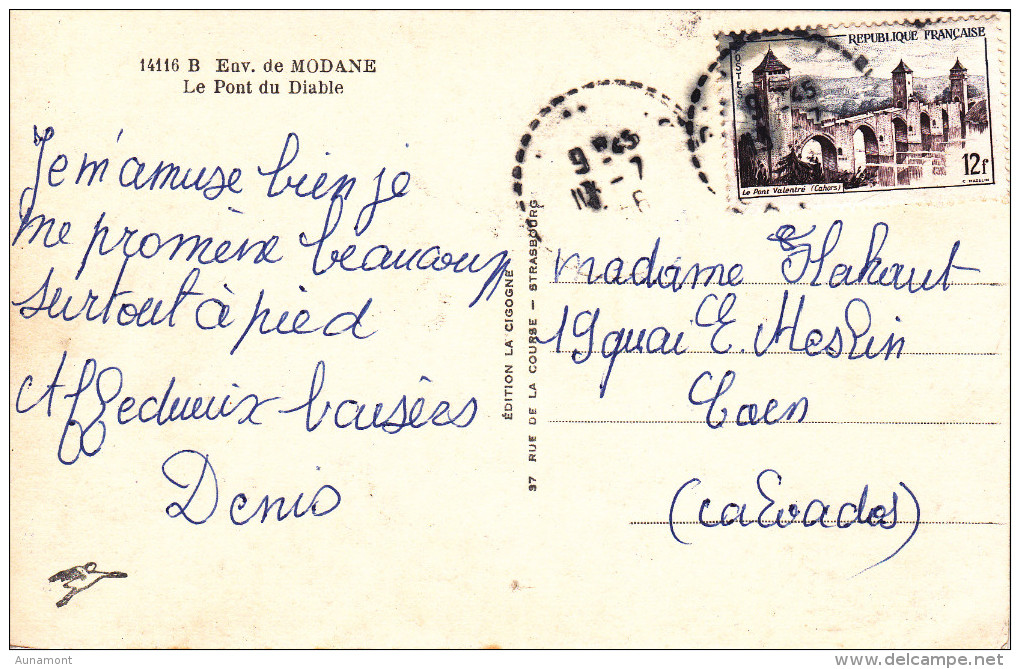 14116 B Env. de MODANE
Le Pont du Diable
Je m'amuse bien je
me promène beaucoup
surtout à pied
Affectueux baisers
Denis
ÉDITION LA CIGOGNE
37 RUE DE LA COURSE – STRASBOURG
REPUBLIQUE FRANÇAISE
POSTES
12f
Le Pont Valentré (Cahors)
9 45
-7
madame Flahaut
19 quai E. Meslin
Caen
(calvados)
Aunamont
delcampe.net